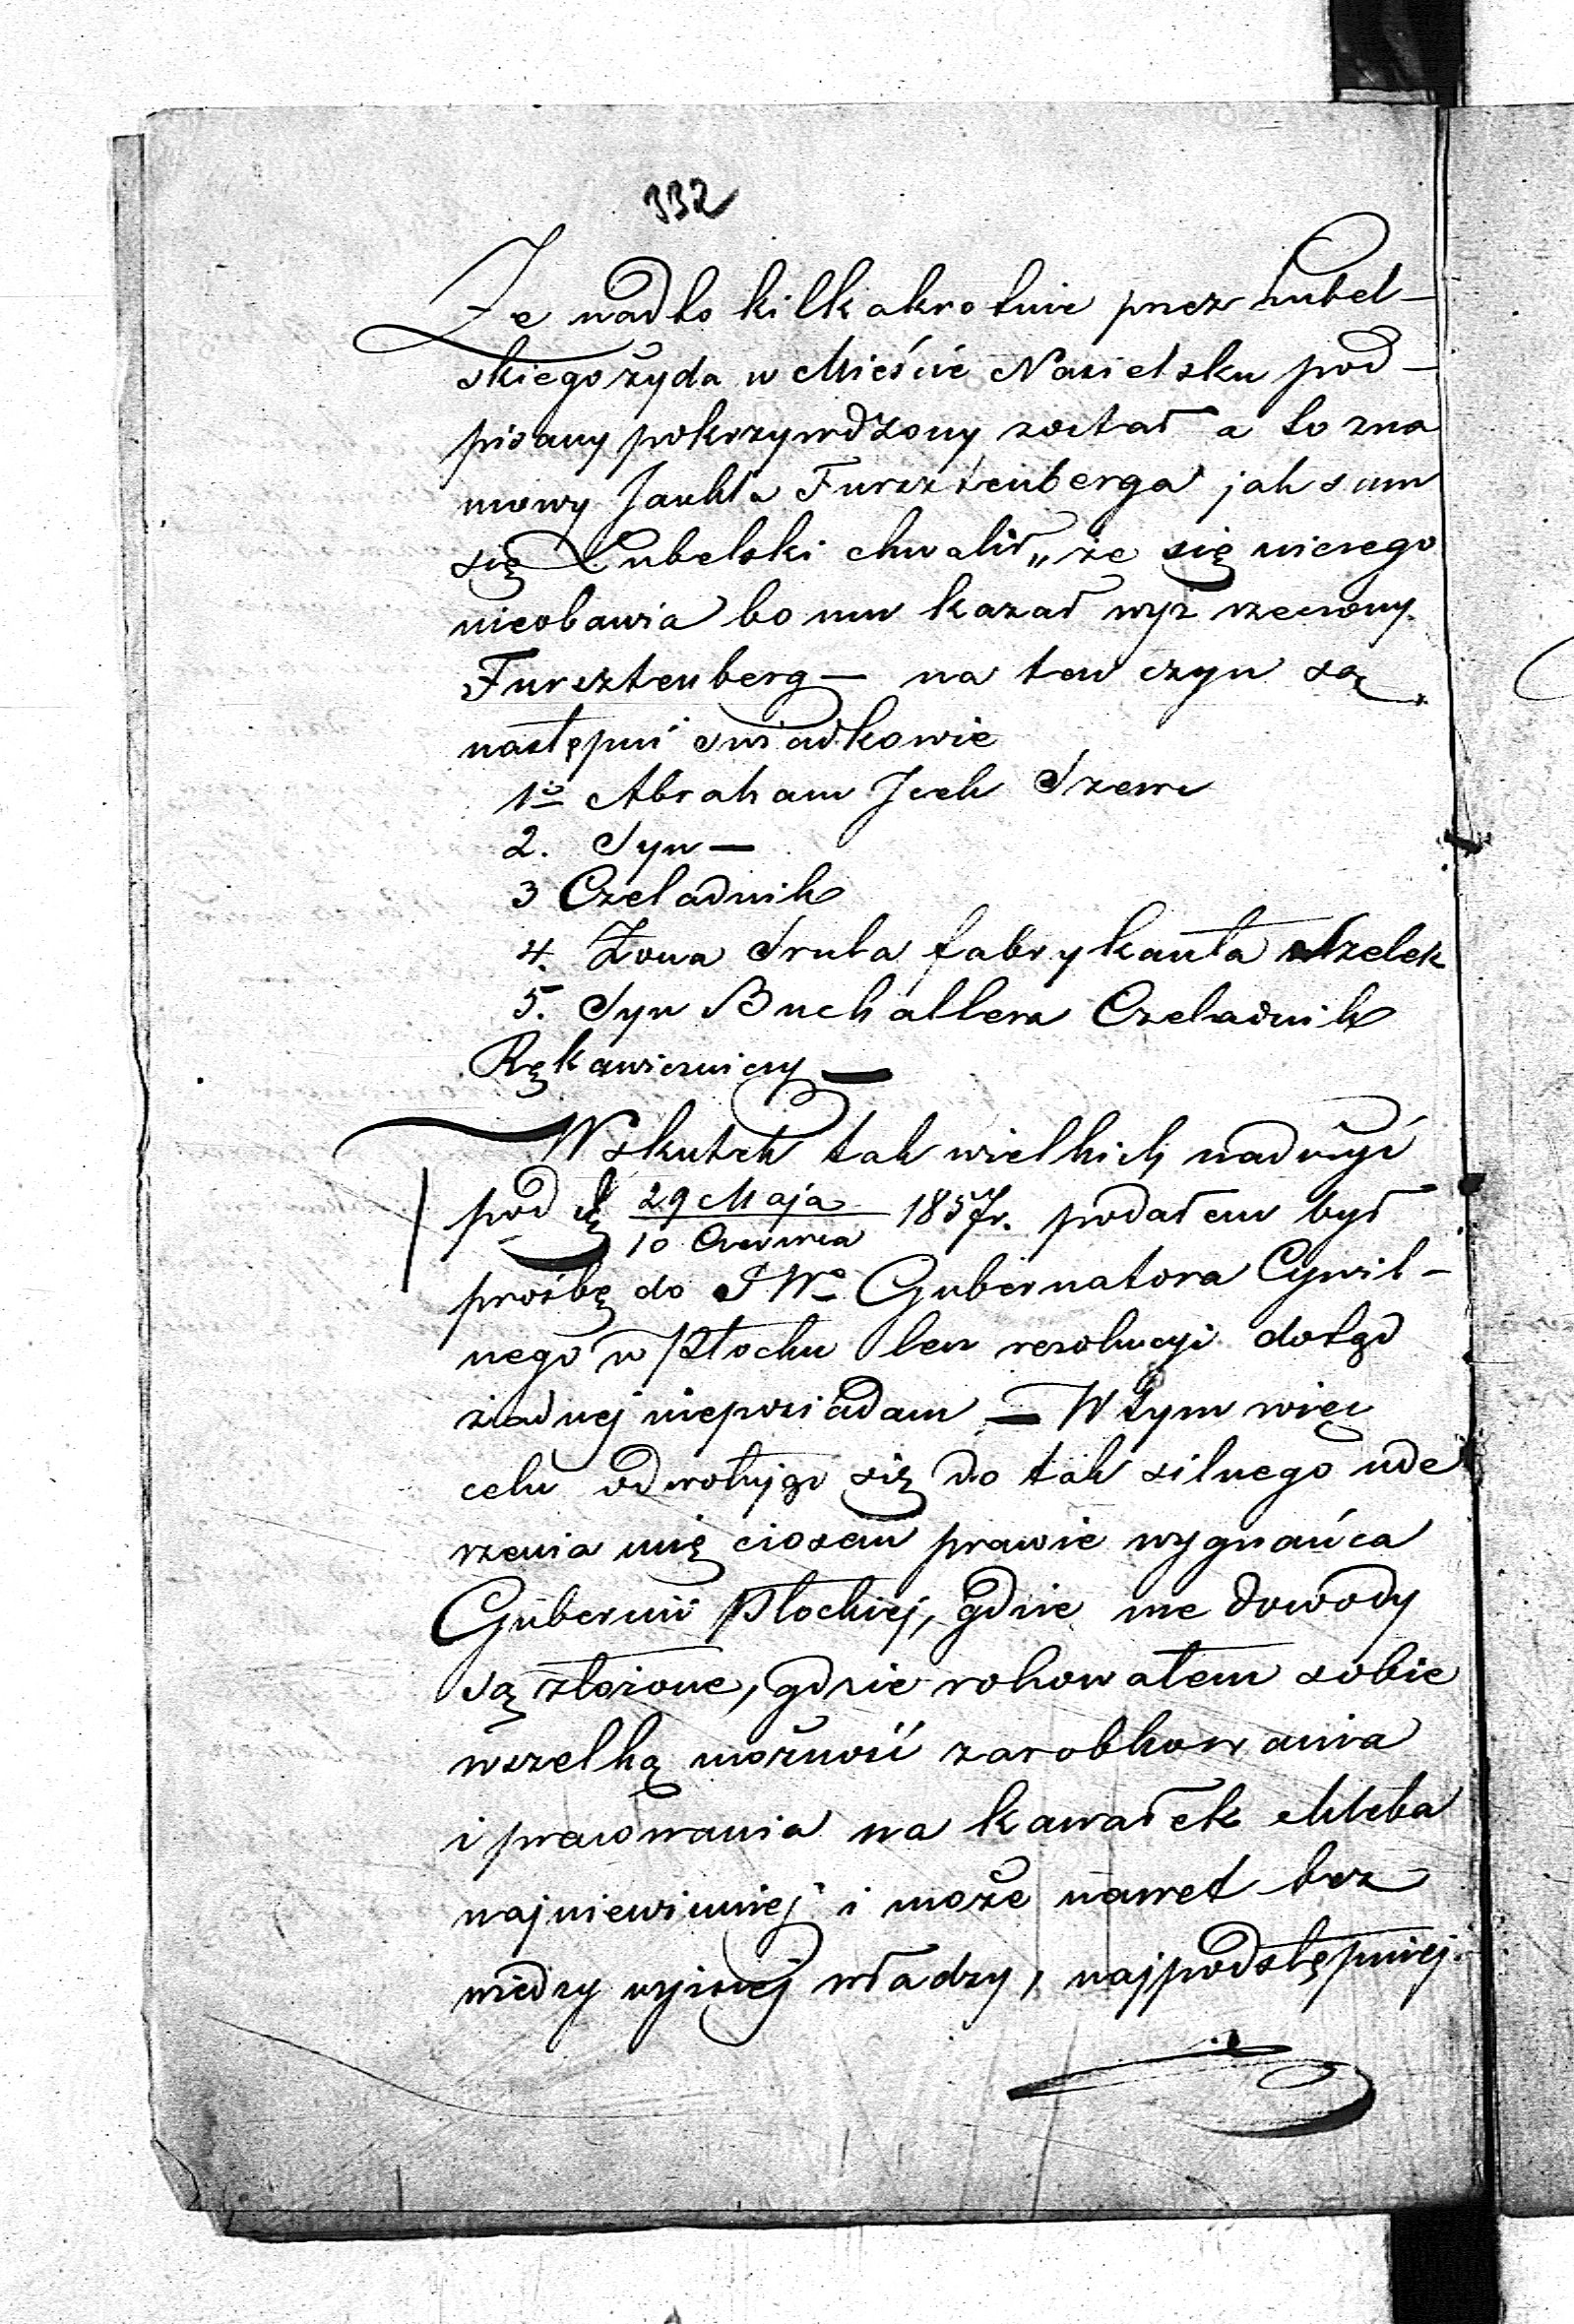 332
Że nadto kilkakrotnie przez Lubel-
skiego żyda w Mieście Nasielsku pod-
pisany pokrzywdzony został a to zna
mowy Jankla Fursztenberga jak sam
się Lubelski chwalił „że się niczego
nieobawia bo mu kazał wyż rzeczony
Fursztenberg — na ten czyn są
następni świadkowie
1o Abraham Szewc
2. Syn —
3 Czeladnik
4. Żona Srula fabrykanta Szelek
5. Syn Buchaltera Czeladnik
Rękawiczniczy —
Wskutek tak wielkich nadużyć
pod d 29 Maja / 10 Czerwca 1857r. podałem był
prośbę do JWo Gubernatora Cywil-
nego w Płocku lecz rezolucyi dotąd
żadnej nieposiadam — W tym więc
celu odwołuję się do tak silnego ude
rzenia mię ciosem prawie wygnańca
Gubernii Płockiej, gdzie me dowody
są złożone, gdzie rokowałem sobie
wszelką możność zarobkowania
i pracowania na kawałek chleba
najniewinniej i może nawet bez
wiedzy wyższej władzy, najpodstępniej